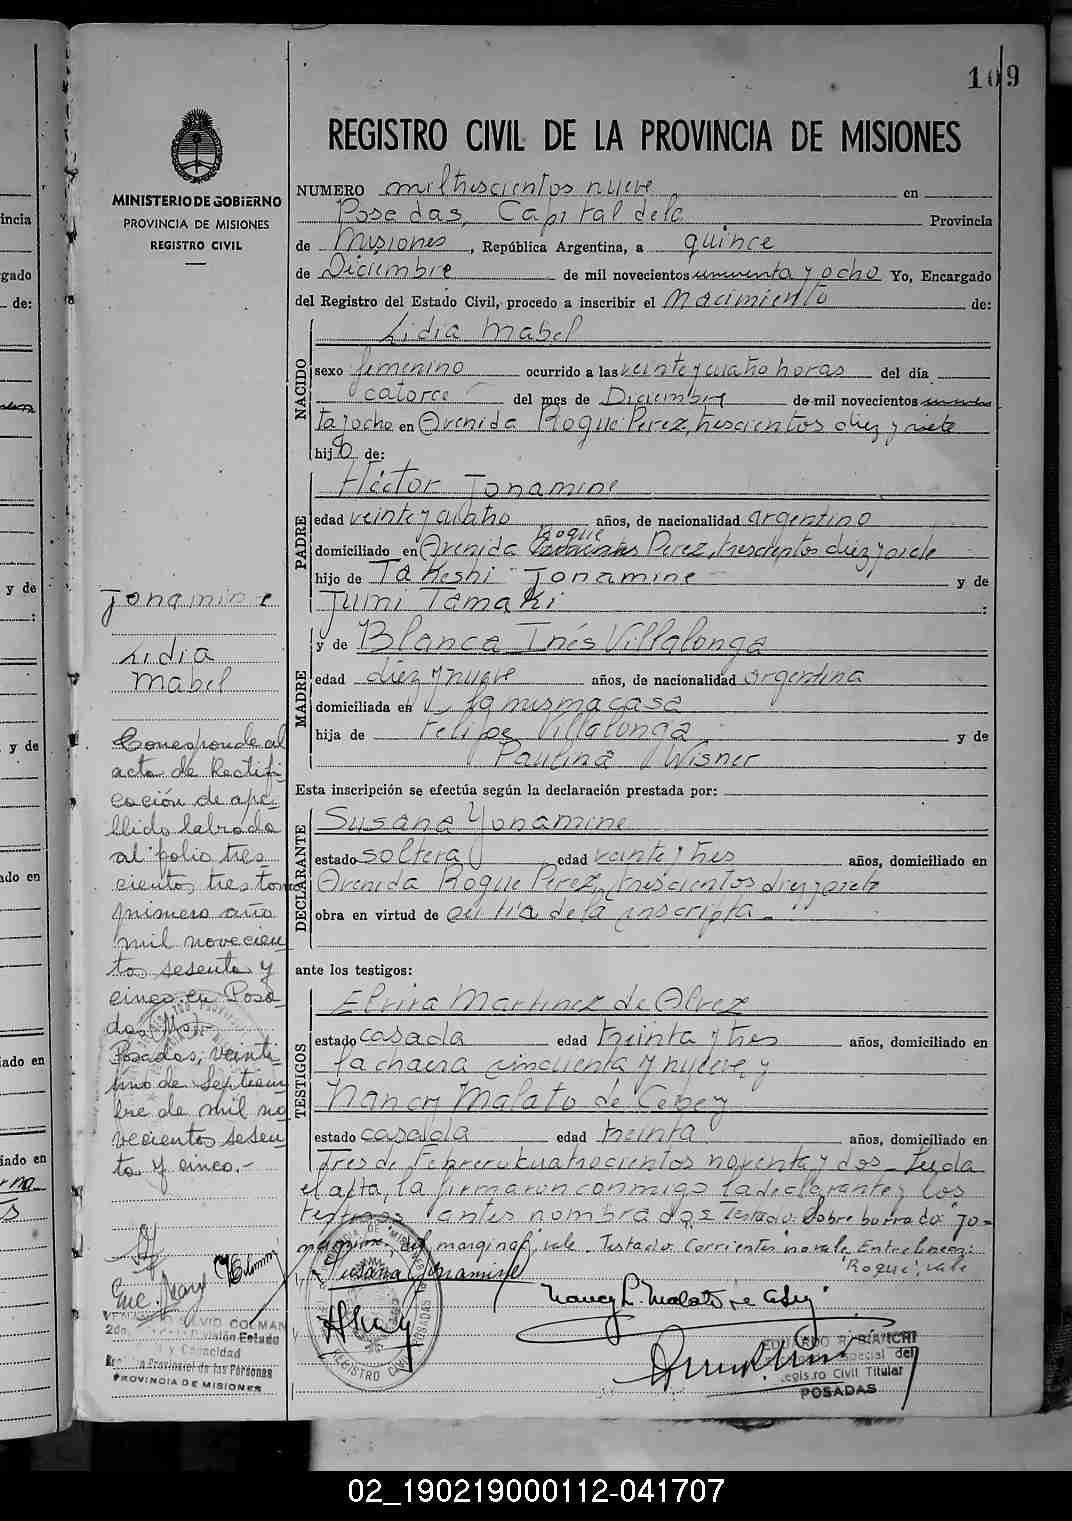 109
REGISTRO CIVIL DE LA PROVINCIA DE MISIONES
MINISTERIO DE GOBIERNO
PROVINCIA DE MISIONES
REGISTRO CIVIL
NUMERO mil trescientos nueve en
Posadas, Capital de la Provincia
de Misiones, República Argentina, a quince
de Diciembre de mil novecientos cincuenta y ocho Yo, Encargado
del Registro del Estado Civil, procedo a inscribir el nacimiento de:
NACIDO
Lidia Mabel
sexo femenino ocurrido a las veinte y cuatro horas del día
catorce del mes de Diciembre de mil novecientos cincuen
ta y ocho en Avenida Roque Perez, trescientos diez y siete
hija de:
PADRE
Héctor Jonamine
edad veinte y cuatro años, de nacionalidad argentino
Roque
domiciliado en Avenida Corrientes Perez, trescientos diez y siete
hijo de Takeshi Jonamine y de
Jumi Tamaki :
MADRE
y de Blanca Inés Villalonga
edad diez y nueve años, de nacionalidad argentina
domiciliada en la misma casa
hija de Felipe Villalonga y de
Paulina Wisner
Esta inscripción se efectúa según la declaración prestada por:
DECLARANTE
Susana Yonamine
estado soltera edad veinte y tres años, domiciliado en
Avenida Roque Perez, trescientos diez y siete
obra en virtud de ser tia de la inscripta
ante los testigos:
TESTIGOS
Elvira Martinez de Alvez
estado casada edad treinta y tres años, domiciliado en
la chacra cincuenta y nueve, y
Nancy Malato de
estado casada edad treinta años, domiciliado en
Tres de Febrero cuatrocientos noventa y dos - Leida
el acta, la firmaron conmigo la declarante y los
testigos antes nombrados Testado: Sobre borrado: "Jo-
namine, del marginal, vale. Testado: Corrientes no vale, Entrelineas:
"Roque", vale
Susana Yonamine
Jonamine
Lidia
Mabel
Corresponde al
acta de Rectifi
cación de ape-
llido labrada
al folio tres
cientos tres tomo
primero año
mil novecien
tos sesenta y
cinco en Posa-
das, Mnes
Posadas, veinti
uno de Septiem
bre de mil no
vecientos sesen
ta y cinco.-
DAVID COLMAN
División Estado
y Capacidad
Provincial de las Personas
PROVINCIA DE MISIONES
REGISTRO CIVIL
POSADAS
EDUARDO R. BIANCHI
Especial del
Registro Civil Titular
POSADAS
incia
gado
de:
y de
:
y de
ado en
iado en
iado en
02_190219000112-041707